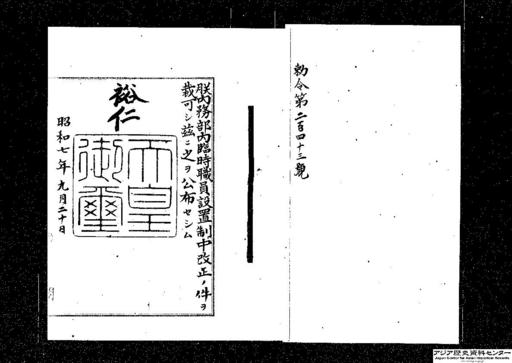 勅令第二百四十三號
朕内務部内臨時職員設置制中改正ノ件ヲ
裁可シ茲ニ之ヲ公布セシム
裕仁
天皇御璽
昭和七年九月二十日
アジア歴史資料センター
Japan Center for Asian Historical Records